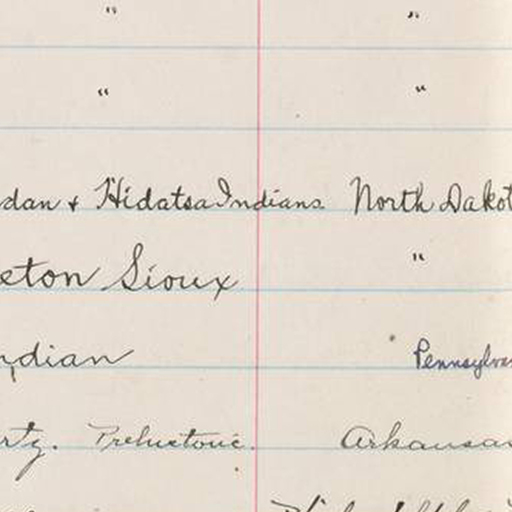 " "
" "
dan & Hidatsa Indians North Dakot
eton Sioux "
ndian Pennsylvan
rty. Prehistoric. Arkansas